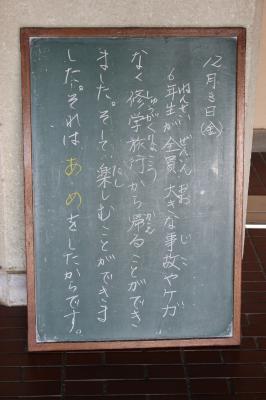 12月3日(金)
6年生が全員大きな事故やケガ
なく修学旅行から帰ることができ
ました。そして、楽しむことができま
した。それは、あめをしたからです。